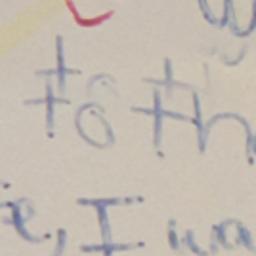 to th
e, I wa